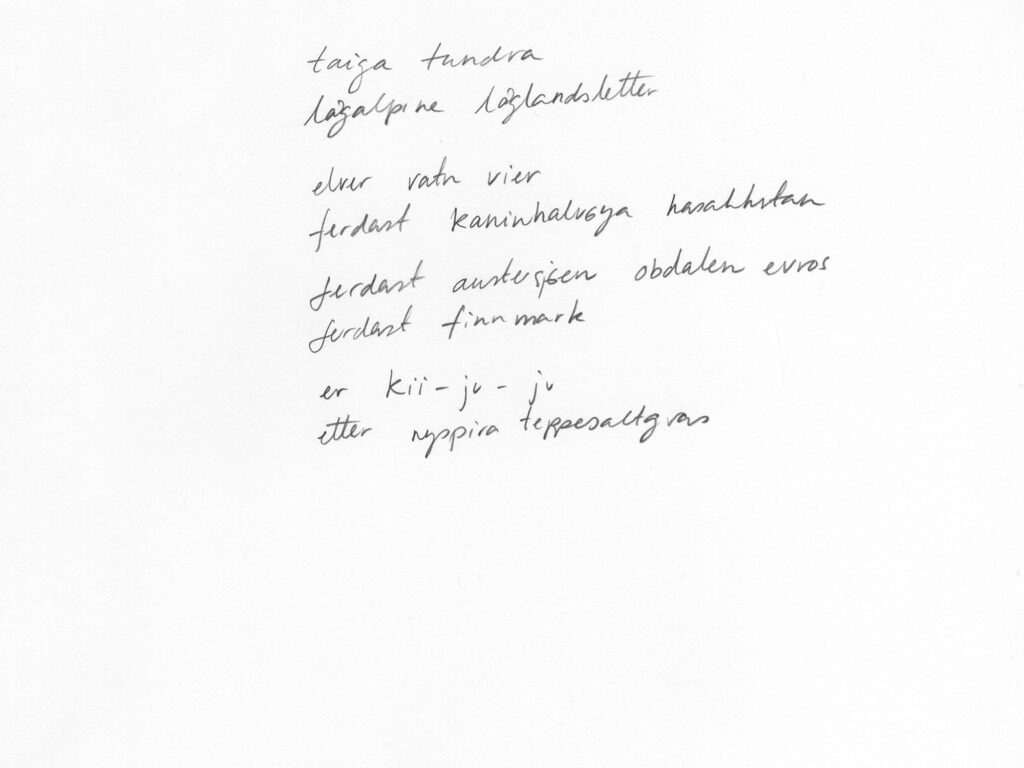 taiga tundra
lågalpine låglandsletter
elver vatn vier
ferdast kaninhalvøya kasakhstan
ferdast austersjøen obdalen evros
ferdast finnmark
er kii-ju-ju
etter nyspira teppesaltgras